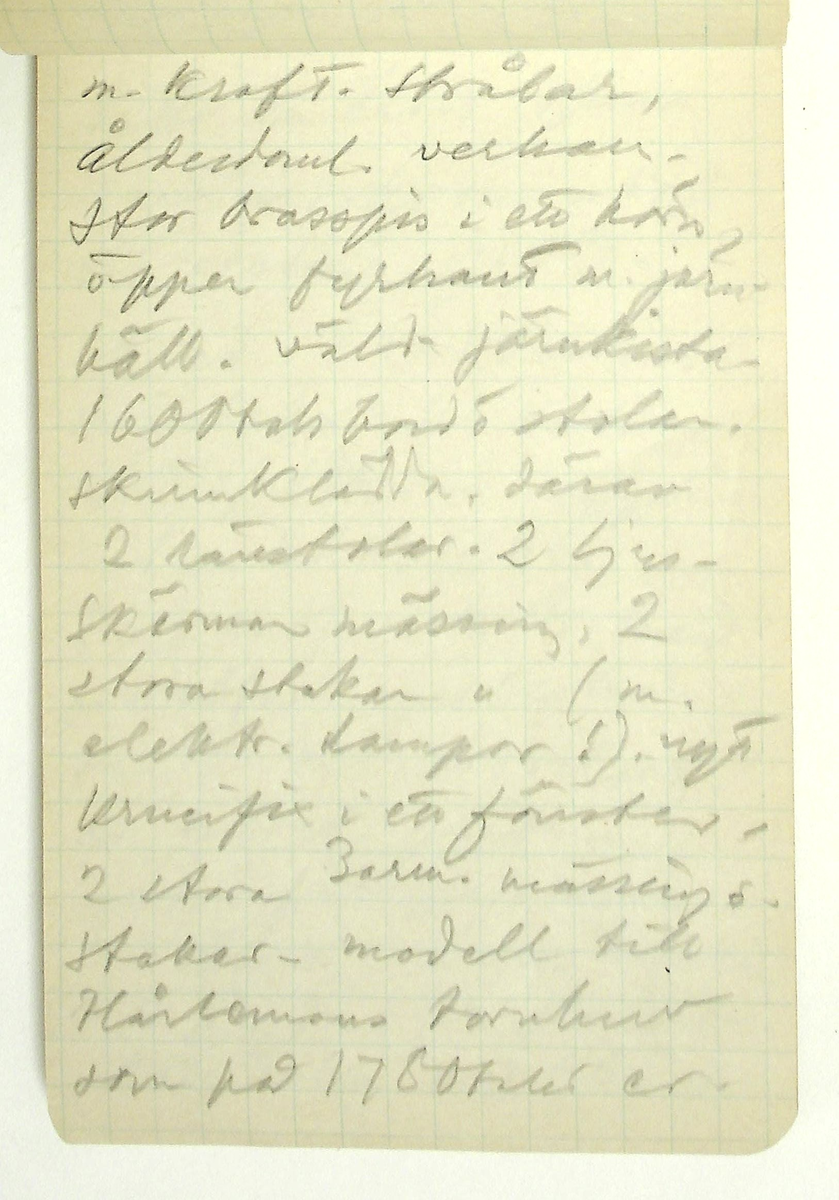 m. kraft. stråbar,
ålderdoml. verkan.
Stor brasspis i ett hörn,
öppen fyrkant m. järn-
häll. väld. järnkista
1600tals bord o stolar.
skinnklädda, därav
2 länstolar. 2 ljus-
skärmar mässing, 2
stora stakar " (m.
elektr. lampor!). nytt
krucifix i ett fönster,
2 stora 3arm. mässings-
stakar - modell till
Hårlemans tornhuv
som på 1750talet er-